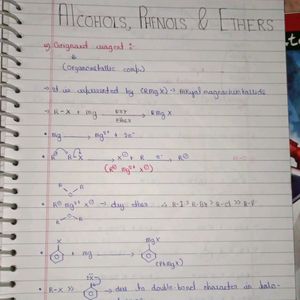 ALCOHOLS, PHENOLS & ETHERS
Grignard reagent :
(Organometallic comp.)
→ It is represented by (RMgX) → Alkyl magnesium halide
→ R-X + mg → RMgX
Ether
• mg → mg²⁺ + 2e⁻
• R X → X⊖ + R e⁻, R⊖
(R⊖ mg²⁺ X⊖)
R O R
• R⊖ mg²⁺ X⊖ → dry ether ∴ R-I > R-Br > R-Cl >> R-F
R O R
X MgX
• + mg →
(PhMgX)
:X:
• R-X >> → due to double bond character in halo-